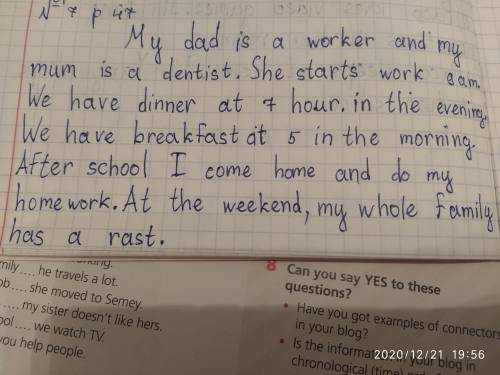 № 7 p 47
My dad is a worker and my
mum is a dentist. She starts work 8 am.
We have dinner at 7 hour. in the evening.
We have breakfast at 5 in the morning.
After school I come home and do my
homework. At the weekend, my whole family
has a rast.
mily .... he travels a lot.
ob .... she moved to Semey.
.... my sister doesn't like hers.
ool .... we watch TV.
you help people.
8 Can you say YES to these
questions?
• Have you got examples of connectors
in your blog?
• Is the information in your blog in
chronological (time)
2020/12/21 19:56